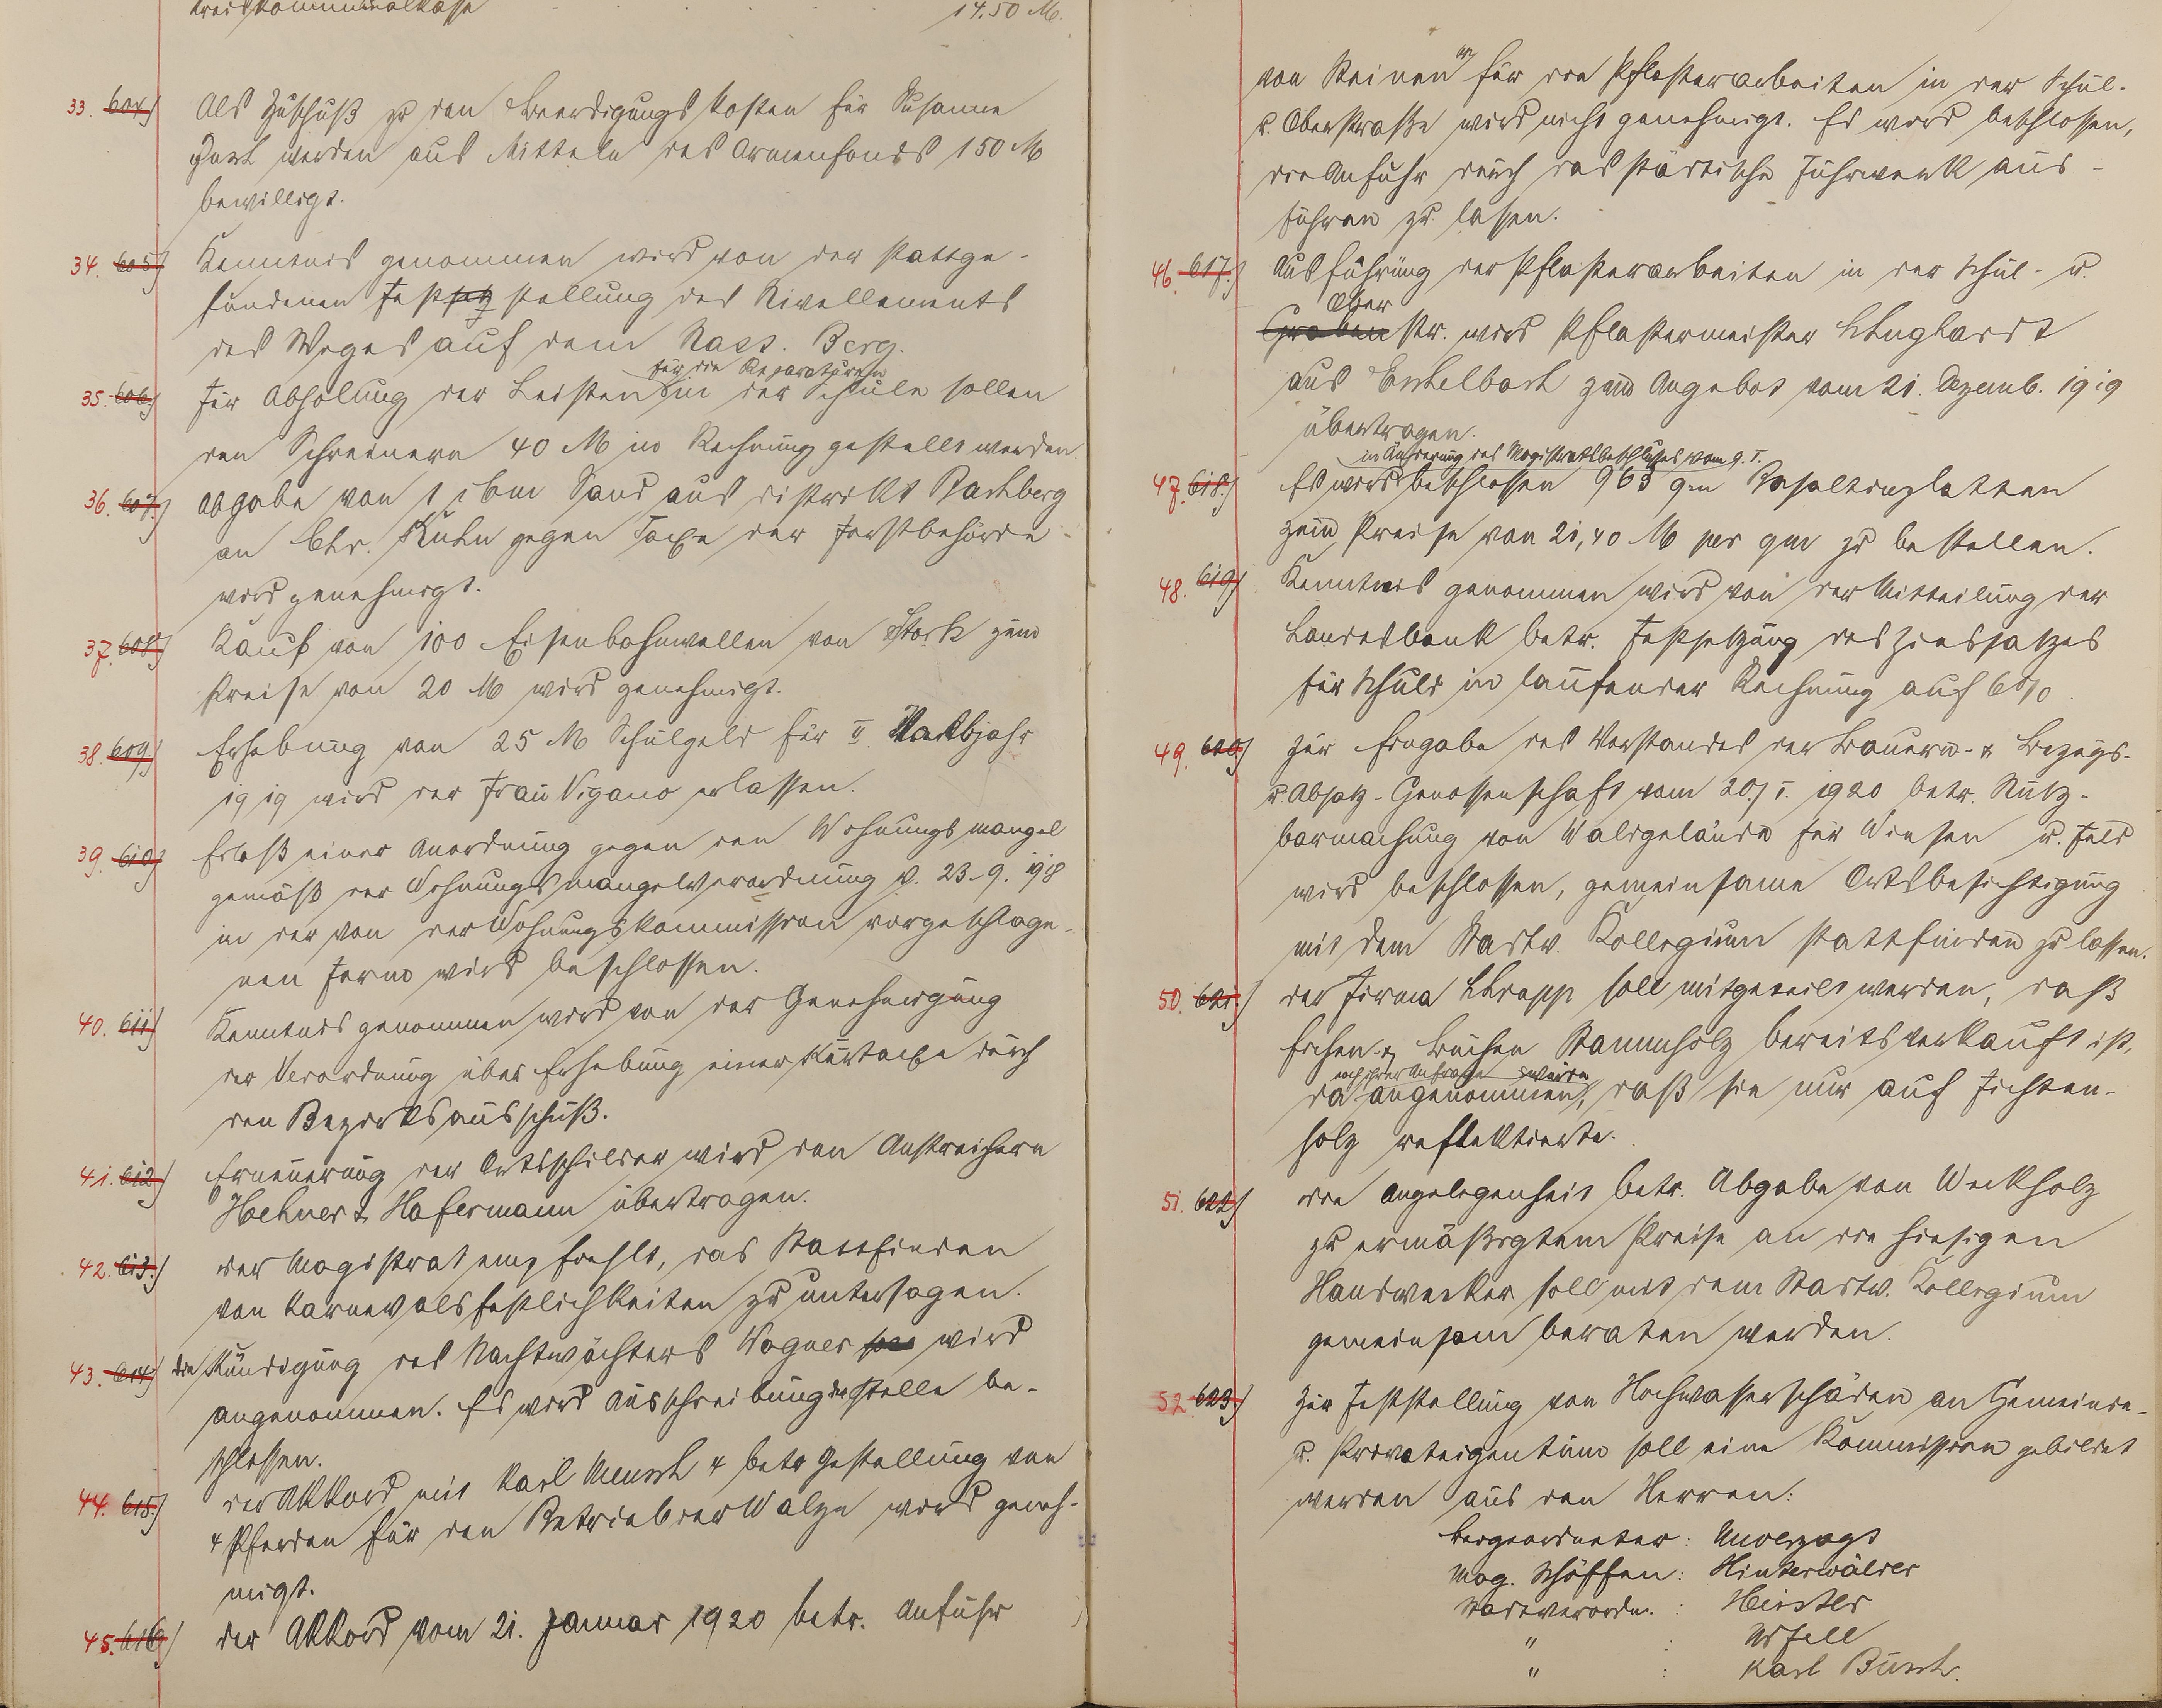 Kreiskommunalkasse 14.50 M.
33. 604) Als Zuschuß zu den Beerdigungskosten für Susanne
werden aus Mitteln des Armenfonds 150 M
bewilligt.
34. 605) Kenntnis genommen wird von der stattge-
fundenen Festsetz stellung des Nivellements
des Weges auf dem Nass. Berg.
für die Reparaturen
35. 606) Für Abholung der Leisten in der Schule sollen
den Schreinern 40 M in Rechnung gestellt werden.
36. 607.) Abgabe von 1 cbm Sand aus Distrikt Bachberg
an Chr. Kuhn gegen Taxe der Forstbehörde
wird genehmigt.
37. 608) Kauf von 100 Eisenbahnwellen von Stock zum
Preise von 20 M wird genehmigt.
38. 609) Erhebung von 25 M Schulgeld für II. Halbjahr
1919 wird der Frau Vigano erlassen.
39. 610) Erlaß einer Anordnung gegen den Wohnungsmangel
gemäß der Wohnungsmangelverordnung v. 23.9.1918
in der von der Wohnungskommission vorgeschlage-
nen Form wird beschlossen.
40. 611) Kenntnis genommen wird von der Genehmigung
der Verordnung über Erhebung einer Kurtaxe durch
den Bezirksausschuß.
41. 612) Erneuerung der Ortsschilder wird den Anstreichern
Hehner & Hafermann übertragen.
42. 613.) der Magistrat empfiehlt, das Stattfinden
von Karnevalsfestlichkeiten zu untersagen.
43. 614) die Kündigung des Nachtwächters Wagner wird
angenommen. Es wird Ausschreibung der Stelle be-
schlossen.
44. 615.) der Akkord mit Karl Mensch 4 betr. Gestellung von
4 Pferden für den Betrieb der Walze wird geneh-
migt.
45. 616) der Akkord vom 21. Januar 1920 betr. Anfuhr
von Steinen für die Pflasterarbeiten in der Schul-
u. Oberstraße wird nicht genehmigt. Es wird beschlossen,
die Anfuhr durch das städtische Fuhrwerk aus-
führen zu lassen.
46. 617.) Ausführung der Pflasterarbeiten in der Schul- u.
Ober
Graben str. wird Pflastermeister Enghardt
aus zum Angebot vom 21. Dezemb. 1919
übertragen.
in Änderung des Magistratsbeschlusses vom 9. I.
47. 618.) Es wird beschlossen 963 qm Basaltinplatten
zum Preise von 21,40 M per qm zu bestellen.
48. 619) Kenntnis genommen wird von der Mitteilung der
Landesbank betr. Festsetzung des Zinssatzes
für Schuld in laufender Rechnung auf 6%.
49. 620) Zur Eingabe des Vorstandes der Bauern- & Bezugs-
u. Absatz-Genossenschaft vom 20./I. 1920 betr. Nutz-
barmachung von Waldgelände für Wiesen u. Feld
wird beschlossen, gemeinsame Ortsbesichtigung
mit dem Stadtv. Kollegium stattfinden zu lassen.
50. 621.) der Firma soll mitgeteilt werden, daß
Eichen- & Buchen Stammholz bereits verkauft ist,
nach ihrer Anfrage wurde
da angenommen, daß sie nur auf Fichten-
holz reflektierte.
51. 622) die Angelegenheit betr. Abgabe von Werkholz
zu ermäßigtem Preise an die hiesigen
Handwerker soll mit dem Stadtv. Kollegium
gemeinsam beraten werden.
52. 623.) Zur Feststellung von Hochwasserschäden an Gemeinde-
u. Privateigentum soll eine Kommission gebildet
werden aus den Herren:
Beigeordneter: Unverzagt
Mag. Schöffen: Hinterwälder
Stadtverordn. : Heister
" : Urfell
" : Karl Busch.